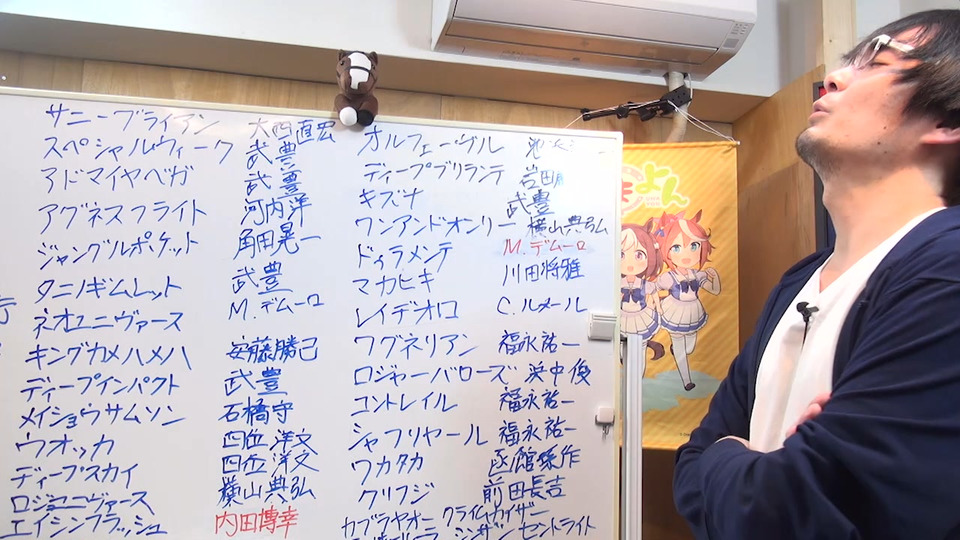 サニーブライアン 大西直宏
スペシャルウィーク 武豊
アドマイヤベガ 武豊
アグネスフライト 河内洋
ジャングルポケット 角田晃一
タニノギムレット 武豊
ネオユニヴァース M.デムーロ
キングカメハメハ 安藤勝己
ディープインパクト 武豊
メイショウサムソン 石橋守
ウオッカ 四位洋文
ディープスカイ 四位洋文
ロジユニヴァース 横山典弘
エイシンフラッシュ 内田博幸
オルフェーヴル 池添
ディープブリランテ 岩田
キズナ 武豊
ワンアンドオンリー 横山典弘
ドゥラメンテ M.デムーロ
マカヒキ 川田将雅
レイデオロ C.ルメール
ワグネリアン 福永祐一
ロジャーバローズ 浜中俊
コントレイル 福永祐一
シャフリヤール 福永祐一
ワカタカ 函館孫作
クリフジ 前田長吉
カブラヤオー クライムカイザー
シンザン セントライト
よん